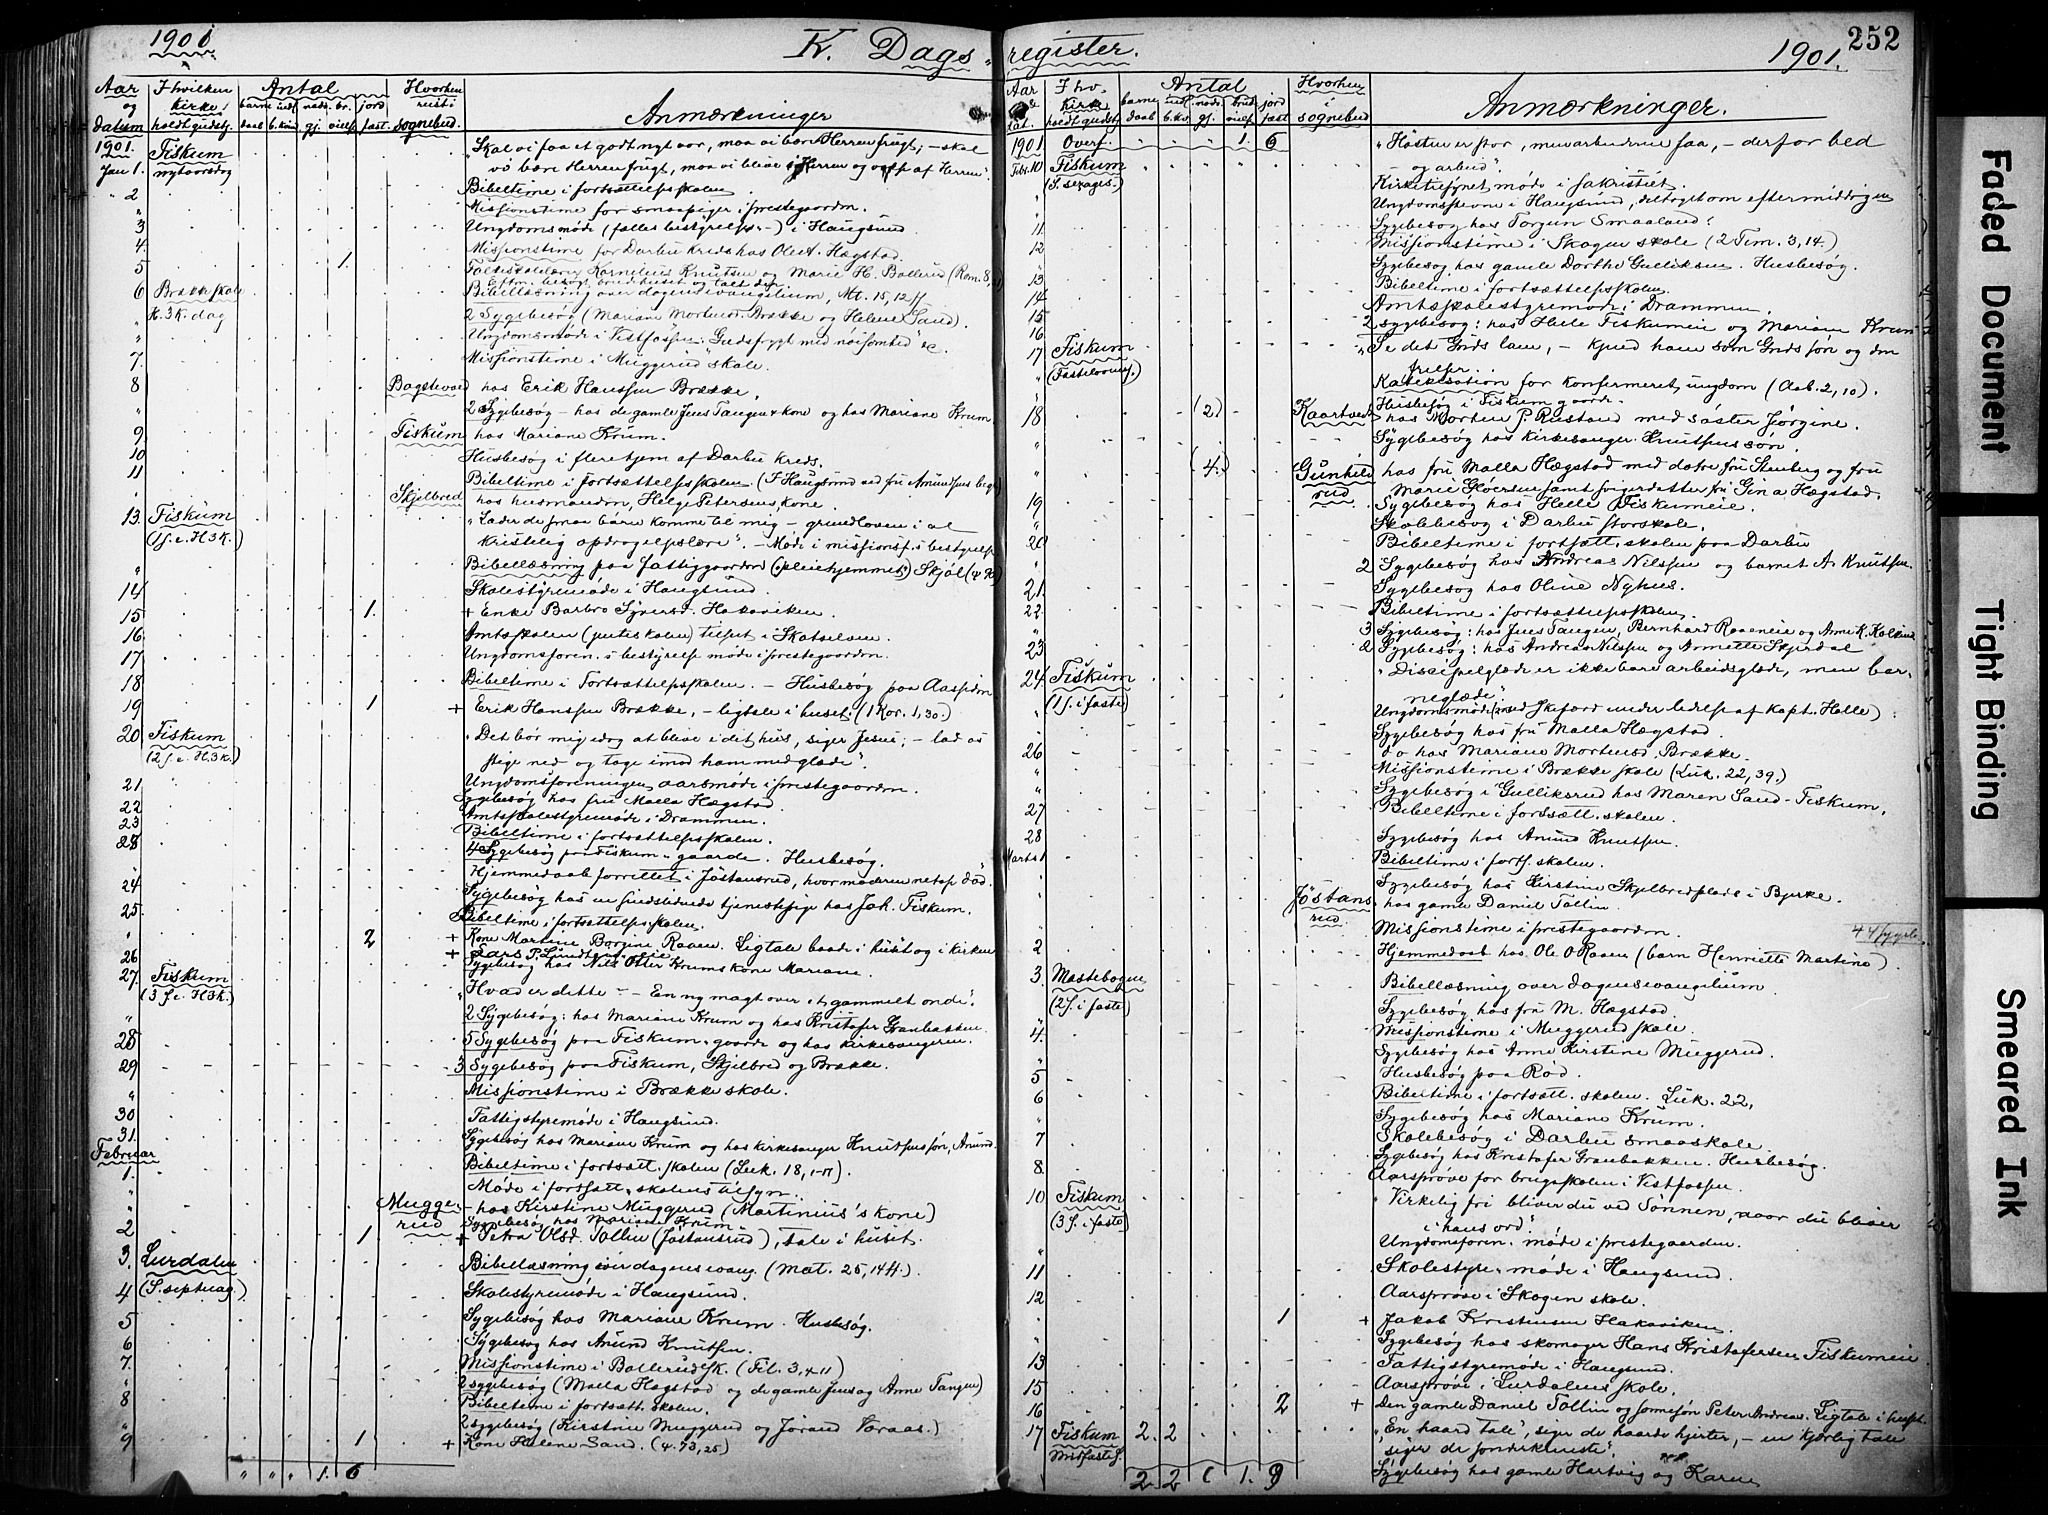 1901.
K. Dags-
Aar og datum
I hvilken kirke holdt gudstj.
Antal
barne daab
nadv. gj.
br. vielf.
jord fæst.
Hvorhen reist i sognebud.
Anmærkninger
1901. Jan 1. Fiskum nytaarsdag "Skal vi faa et godt nyt aar, maa vi bære Herren frugt, – skal
vi bære Herren frugt, maa vi blive i Herren og af Herren".
" 2 Bibeltime i fortsættelsesskolen.
" Missionstime for smaapiger i prestegaarden.
3 Ungdomsmøde (fælles bestyrelse) i Haugsund.
4. Missionstime for Darbu kreds hos Ole A. Hægstad.
5 1. Folkeskolelærer Kornelius Knutsen og Marie H. Bollerud (Rom. 8,
Eftm. besøgt brudehuset og talt der
6 Brække skole Bibellæsning over dagens evangelium, Mt. 15, 12 ff
H. 3 K. dag 2 Sygebesøg (Mariane Mortensd. Brække og Helene Sand).
" Ungdomsmøde i Vestfossen: Gudsfrygt med nøisomhed &c.
7. Missionstime i Muggerud skole.
8 Bagstevold hos Erik Hanssen Brække.
" 2 Sygebesøg – hos de gamle Jens Tangen & kone og hos Mariane Krum
9. Fiskum hos Mariane Krum.
10 Husbesøg i flere hjem af Darbu kreds.
11 Bibeltime i fortsættelsesskolen (I Haugsund ved fru Amundsens begr.
" Skjelbred hos husmanden, Helge Petersens, kone.
13. Fiskum "Lader de smaa børn komme til mig – grundloven i al
(1 s. e. H3K.) kristelig opdragelseslære". – Møde i missionsf.s bestyrelse
" Bibellæsning paa Fattiggaarden (pleiehjemmet) Skjøl (
14 Skolestyremøde i Haugsund.
15 1. + Enke Barbro Syversd. Hakaviken
16 Amtsskolen (gutteskolen) tilset i Skotselven.
17 Ungdomsforen.s bestyrelse møde i prestegaarden.
18 Bibeltime i Fortsættelsesskolen. – Husbesøg paa Aassiden
19 1 + Erik Hanssen Brække, – ligtale i huset. (1 Kor. 1, 30.)
20 Fiskum "Det bør mig idag at blive i dit hus, siger Jesus; – lad os
(2 s. e. H3K.) stige ned og tage imod ham med glæde".
21 Ungdomsforeningens aarsmøde i prestegaarden.
22 Sygebesøg hos fru Malla Hægstad.
23 Amtsskolestyremøde i Drammen.
Bibeltime i fortsættelsesskolen.
" 4 Sygebesøg paa Fiskum-gaarde. Husbesøg.
24 Hjemmedaab forrettet i Jøstansrud, hvor moderen netop død.
Sygebesøg hos en sindslidende tjenestepige hos Joh. Fiskum.
25. Bibeltime i fortsættelsesskolen.
26 2 + Kone Martine Borgine Raaen. Ligtale baade i huset og i kirken
+ Lars P.
27. Fiskum Sygebesøg hos Nils Otter Krums kone Mariane.
(3 s. e. H3K.) "Hvad er dette? – En ny magt over et gammelt onde".
" 2 Sygebesøg: hos Mariane Krum og hos Kristofer Granbakken.
28 5 Sygebesøg paa Fiskum-gaarde og hos kirkesangeren.
29 3 Sygebesøg paa Fiskum, Skjelbred og Brække.
" Missionstime i Brække skole.
30 Fattigstyremøde i Haugsund.
31. Sygebesøg hos Mariane Krum og hos kirkesanger Knutsens søn, Anund.
Februar
1. Bibeltime i fortsætt. skolen (Luk. 18, 1-17).
" Møde i fortsætt. skolens tilsyn.
" Mugge- rud – hos Kirstine Muggerud (Martinius's kone)
Sygebesøg hos Mariane Krum
2 1 + Petra Olsd. Tollin (Jøstansrud), tale i huset.
3. Lurdalen Bibellæsning over dagens evang. (Mat. 25, 14 ff.).
4 (S. septuag.) Skolestyremøde i Haugsund.
5 Sygebesøg hos Mariane Krum. Husbesøg.
6 Sygebesøg hos Anund Knutsen.
7. Missionstime i Bollerud sk. (Fil. 3, 4-11)
" 2 sygebesøg (Malla Hægstad og de gamle Jens og Anne Tangen)
8 Bibeltime i fortsætt. skolen.
" 2 sygebesøg (Kirstine Muggerud og Jørand Varaas.)
9 1. + Kone Helene Sand. (4. 73, 25)
" " " 1. 6
register.
1901.
252
Aar
I hv. kirke holdt gudstj.
Antal
barne daab
nadv. gj.
brud vielf.
jord fæst
Hvorhen i sognebud
Anmærkninger.
1901 Overf. " " " 1. 6 "Høsten er stor, men arbeiderne faa, – derfor bed
Febr. 10 Fiskum – og arbeid".
(S. sexages.) Kirketilsynet møde i sakristiet.
" Ungdomsstevne i Haugsund, deltaget om eftermiddagen
11 Sygebesøg hos Torgun Smaaland.
12 Missionstime i Skogen skole (2 Tim. 3, 14.)
" Sygebesøg hos gamle Dorthe Gulliksen. Husbesøg.
13 Bibeltime i fortsættelsesskolen.
14 Amtsskolestyremøde i Drammen.
15 2 sygebesøg: hos Helle Fiskumeie og Mariane Krum
16 "Se det Guds lam, – kjend ham som Guds søn og din
17 Fiskum frelser.
(Fastelavns.) Katekisation for konfirmeret ungdom (Aab. 2, 10).
Husbesøg i Fiskum gaarde.
18 (2) Kaartvedt hos Morten P. Rustand med søster Jørgine.
" Sygebesøg hos kirkesanger Knutsens søn.
" (4.) Gunhilds rud hos fru Malla Hægstad med døtre fru Stenberg og fru
Marie Gløersen samt svigerdatter fru Gina Hægstad.
19 Sygebesøg hos Helle Fiskumeie.
" Skolebesøg i Darbu storskole.
20 Bibeltime i fortsætt. skolen paa Darbu
" 2 Sygebesøg hos Andreas Nilssen og barnet A. Knutsen.
21. Sygebesøg hos Oline Nyhus.
22 Bibeltime i fortsættelsesskolen.
" 3 Sygebesøg: hos Jens Tangen, Bernhard Raaeneie og Anne K. Kolkin
23 2 Sygebesøg: hos Andreas Nilssen og Annette Skjerdal
24 Fiskum "Discipelglæde er ikke bare arbeidsglæde, men bar-
(1 s. i faste) neglæde".
" Ungdomsmøde (med Skifærd under ledelse af kapt. Holle)
" Sygebesøg hos fru Malla Hægstad.
26 do hos Mariane Mortensd. Brække.
" Missionstime i Brække skole (Luk. 22, 39.)
" Sygebesøg i Gulliksrud hos Maren Sand-Fiskum.
27 Bibeltime i fortsætt. skolen.
28 Sygebesøg hos Anund Knutsen.
Marts 1 Bibeltime i forts. skolen.
" Sygebesøg hos Kirstine Skjelbredplads i Byrke.
" Jøstans rud hos gamle Daniel Tollin
" Missionstime i prestegaarden.
44 sygeb.
2 Hjemmedaab hos Ole O Raaen (barn Henriette Martine)
3. Mastebogen Bibellæsning over dagens evangelium.
(2 s. i faste) Sygebesøg hos fru M. Hægstad.
4. Missionstime i Muggerud skole.
" Sygebesøg hos Anne Kirstine Muggerud.
5 Husbesøg paa Rød.
6 Bibeltime i fortsætt. skolen. Luk. 22,
" Sygebesøg hos Mariane Krum.
7 Skolebesøg i Darbu smaaskole.
" Sygebesøg hos Kristofer Granbakken. Husbesøg.
8 Aarsprøve for brugsskolen i Vestfossen.
10 Fiskum "Virkelig fri bliver du ved Sønnen, naar du bliver
(3 s. i faste) i hans ord".
" Ungdomsforen. møde i prestegaarden.
11 Skolestyre-møde i Haugsund.
12 Aarsprøve i Skogen skole.
" 1 + Jakob Kristensen Hakaviken.
" Sygebesøg hos skomager Hans Kristofersen Fiskumeie
13 Fattigstyremøde i Haugsund.
15 Aarsprøve i Lurdalens skole.
16 2 + Den gamle Daniel Tollin og sønnesøn Peter Andreas. Ligtale i huset.
17 Fiskum 2. 2 "En haard tale", siger de haarde hjerter, – en kjærlig tale
Midfastes. siger de sønderknuste".
Sygebesøg hos gamle Hartvig og Karen
2 2 6 1. 9
Faded Document
Tight Binding
Smeared Ink